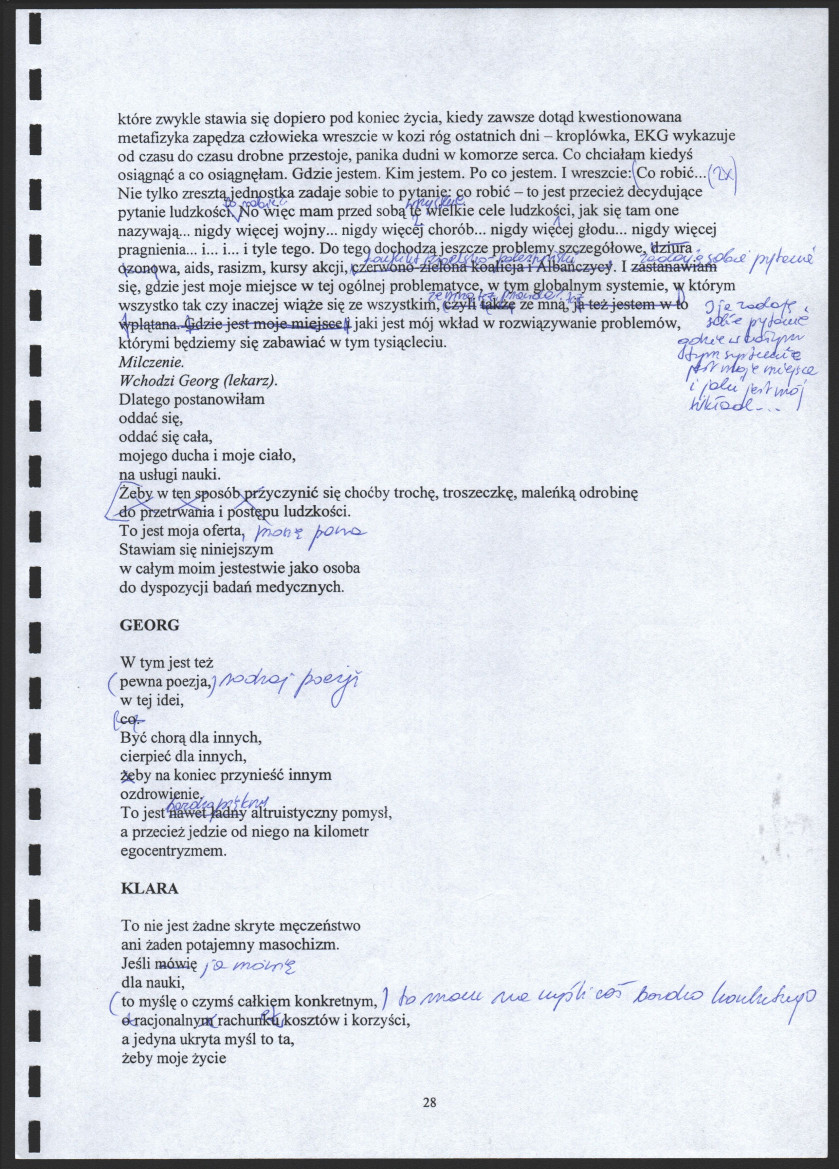 które zwykle stawia się dopiero pod koniec życia, kiedy zawsze dotąd kwestionowana
metafizyka zapędza człowieka wreszcie w kozi róg ostatnich dni – kroplówka, EKG wykazuje
od czasu do czasu drobne przestoje, panika dudni w komorze serca. Co chciałam kiedyś
osiągnąć a co osiągnęłam. Gdzie jestem. Kim jestem. Po co jestem. I wreszcie: (Co robić... (2x)
Nie tylko zresztą jednostka zadaje sobie to pytanie: co robić – to jest przecież decydujące
co robić?
wszystkie
pytanie ludzkości. No więc mam przed sobą te wielkie cele ludzkości, jak się tam one
nazywają... nigdy więcej wojny... nigdy więcej chorób... nigdy więcej głodu... nigdy więcej
pragnienia... i... i... i tyle tego. Do tego dochodzą jeszcze problemy szczegółowe, dziura
konflikt izraelsko-palestyński
zadaję sobie pytanie
ozonowa, aids, rasizm, kursy akcji, czerwono-zielona koalicja i Albańczycy. I zastanawiam
się, gdzie jest moje miejsce w tej ogólnej problematyce, w tym globalnym systemie, w którym
wszystko tak czy inaczej wiąże się ze wszystkim, czyli także ze mną, ja też jestem w to
wplątana. Gdzie jest moje miejsce i jaki jest mój wkład w rozwiązywanie problemów,
którymi będziemy się zabawiać w tym tysiącleciu.
I ja zadaję
sobie pytanie
gdzie w całym
tym systemie
jest moje miejsce
i jaki jest mój
wkład...
Milczenie.
Wchodzi Georg (lekarz).
Dlatego postanowiłam
oddać się,
oddać się cała,
mojego ducha i moje ciało,
na usługi nauki.
Żeby w ten sposób przyczynić się choćby trochę, troszeczkę, maleńką odrobinę
do przetrwania i postępu ludzkości.
To jest moja oferta, proszę pana
Stawiam się niniejszym
w całym moim jestestwie jako osoba
do dyspozycji badań medycznych.
GEORG
W tym jest też
(pewna poezja,) rodzaj poezji
w tej idei,
co.
Być chorą dla innych,
cierpieć dla innych,
żeby na koniec przynieść innym
ozdrowienie.
bardzo piękny
To jest nawet ładny altruistyczny pomysł,
a przecież jedzie od niego na kilometr
egocentryzmem.
KLARA
To nie jest żadne skryte męczeństwo
ani żaden potajemny masochizm.
Jeśli mówię ja mówię
dla nauki,
(to myślę o czymś całkiem konkretnym,) to mam na myśli coś bardzo konkretnego
o racjonalnym rachunku kosztów i korzyści,
a jedyna ukryta myśl to ta,
żeby moje życie
28